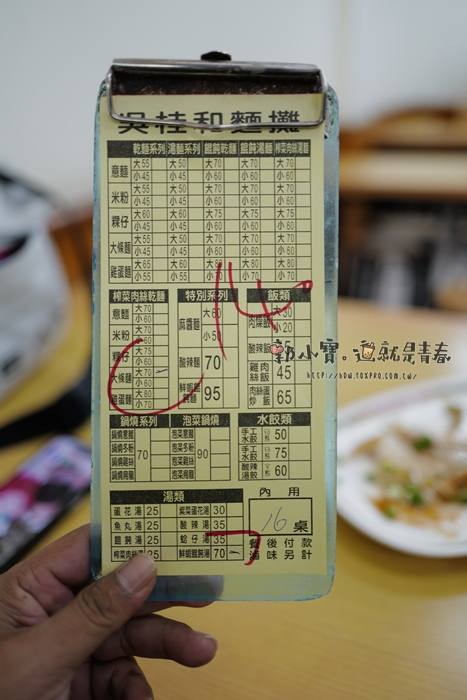 吳桂和麵攤
乾麵系列 湯麵系列 餛飩乾麵 餛飩湯麵 榨菜肉絲湯麵
意麵 大55 大50 大70 大70 大70
小45 小45 小60 小60 小60
米粉 大55 大50 大70 大70 大70
小45 小45 小60 小60 小60
粿仔 大60 大55 大75 大75 大75
小45 小45 小60 小60 小60
大條麵 大60 大60
雞蛋麵
14
榨菜肉絲乾麵 特別系列 飯類
意麵 大70 小60
米粉 大70 小60
粿仔 大75 小60
大條麵
雞蛋麵 大80 小70
麻醬麵 大60 小50
酸辣麵 70
95
肉燥飯 大30 小20
酸辣飯
雞肉絲飯 45
肉絲炒飯 65
郭小寶。這就是青春
HTTP://BOW.FOXPRO.COM.TW/
鍋燒系列 泡菜鍋燒 水餃類
鍋燒意麵 泡菜意麵 手工水餃 50
鍋燒冬粉 70 泡菜冬粉 90 手工水餃 75
鍋燒雞絲 泡菜雞絲 酸辣湯餃 60
鍋燒烏龍 泡菜烏龍
湯類 內用
蛋花湯 25 紫菜蛋花湯 30
魚丸湯 25 酸辣湯 35 16 桌
餛飩湯 25 蛤仔湯 35 餐後付款
榨菜肉絲湯 25 鮮蝦餛飩湯 70 滷味另計